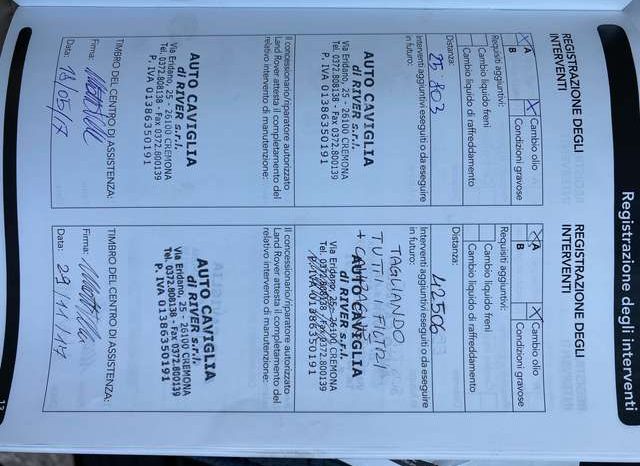 Registrazione degli interventi
REGISTRAZIONE DEGLI
INTERVENTI
X A
X Cambio olio
B
Condizioni gravose
Requisiti aggiuntivi:
Cambio liquido freni
Cambio liquido di raffreddamento
Distanza:
25.803
Interventi aggiuntivi eseguiti o da eseguire
in futuro:
AUTO CAVIGLIA
di RIVER s.r.l.
Via Eridano, 25 - 26100 CREMONA
Tel. 0372.808138 - Fax 0372.800139
P. IVA 01386350191
Il concessionario/riparatore autorizzato
Land Rover attesta il completamento del
relativo intervento di manutenzione:
AUTO CAVIGLIA
di RIVER s.r.l.
Via Eridano, 25 - 26100 CREMONA
Tel. 0372.808138 - Fax 0372.800139
P. IVA 01386350191
TIMBRO DEL CENTRO DI ASSISTENZA:
Firma:
Data: 18/05/17
REGISTRAZIONE DEGLI
INTERVENTI
X A
X Cambio olio
B
Condizioni gravose
Requisiti aggiuntivi:
Cambio liquido freni
Cambio liquido di raffreddamento
Distanza:
42506
Interventi aggiuntivi eseguiti o da eseguire
in futuro:
TAGLIANDO
TUTTI I FILTRI
+
AUTO CAVIGLIA
di RIVER s.r.l.
Via Eridano, 25 - 26100 CREMONA
Tel. 0372.808138 - Fax 0372.800139
P. IVA 01386350191
Il concessionario/riparatore autorizzato
Land Rover attesta il completamento del
relativo intervento di manutenzione:
AUTO CAVIGLIA
di RIVER s.r.l.
Via Eridano, 25 - 26100 CREMONA
Tel. 0372.808138 - Fax 0372.800139
P. IVA 01386350191
TIMBRO DEL CENTRO DI ASSISTENZA:
Firma:
Data: 29/11/17